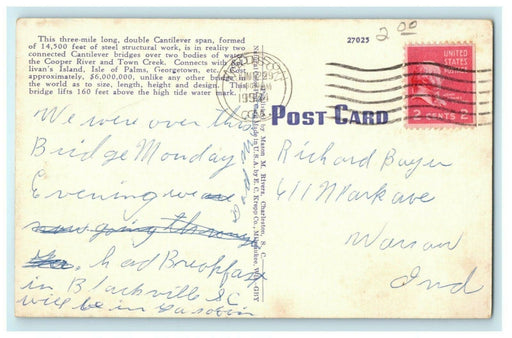 This three-mile long, double Cantilever span, formed
of 14,500 feet of steel structural work, is in reality two
connected Cantilever bridges over two bodies of water
the Cooper River and Town Creek. Connects with
livan's Island, Isle of Palms, Georgetown, etc.
approximately, $6,000,000, unlike any other bridge in
the world as to size, length, height and design. This
bridge lifts 160 feet above the high tide water mark.
27025
2 00
UNITED
STATES
2 CENTS 2
POST CARD
by Mason M. Rivers, Charleston, S. C.
Made in U.S.A. by E. C. Kropp Co., Milwaukee, Wis.
We were over this
Bridge Monday
Evening we are
now going through
had Breakfast
in Blackville SC
will be in
Richard Buyer
611 N Park ave
Warsaw
Ind